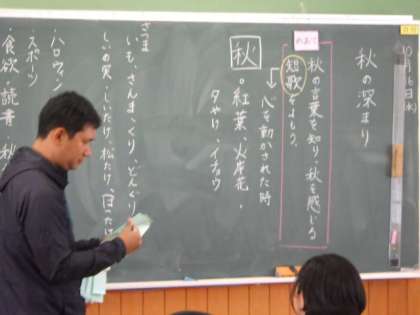 秋の深まり
めあて
秋の言葉を知り、秋を感じる
短歌をよもう。
心を動かされた時
秋
・紅葉・火岸花・
夕やけ、イチョウ
さつま
いも、さんま、くり、どんぐり
しいの実・しいたけ、松たけ、
・ハロウィン
・スポーツ
・食欲・読書